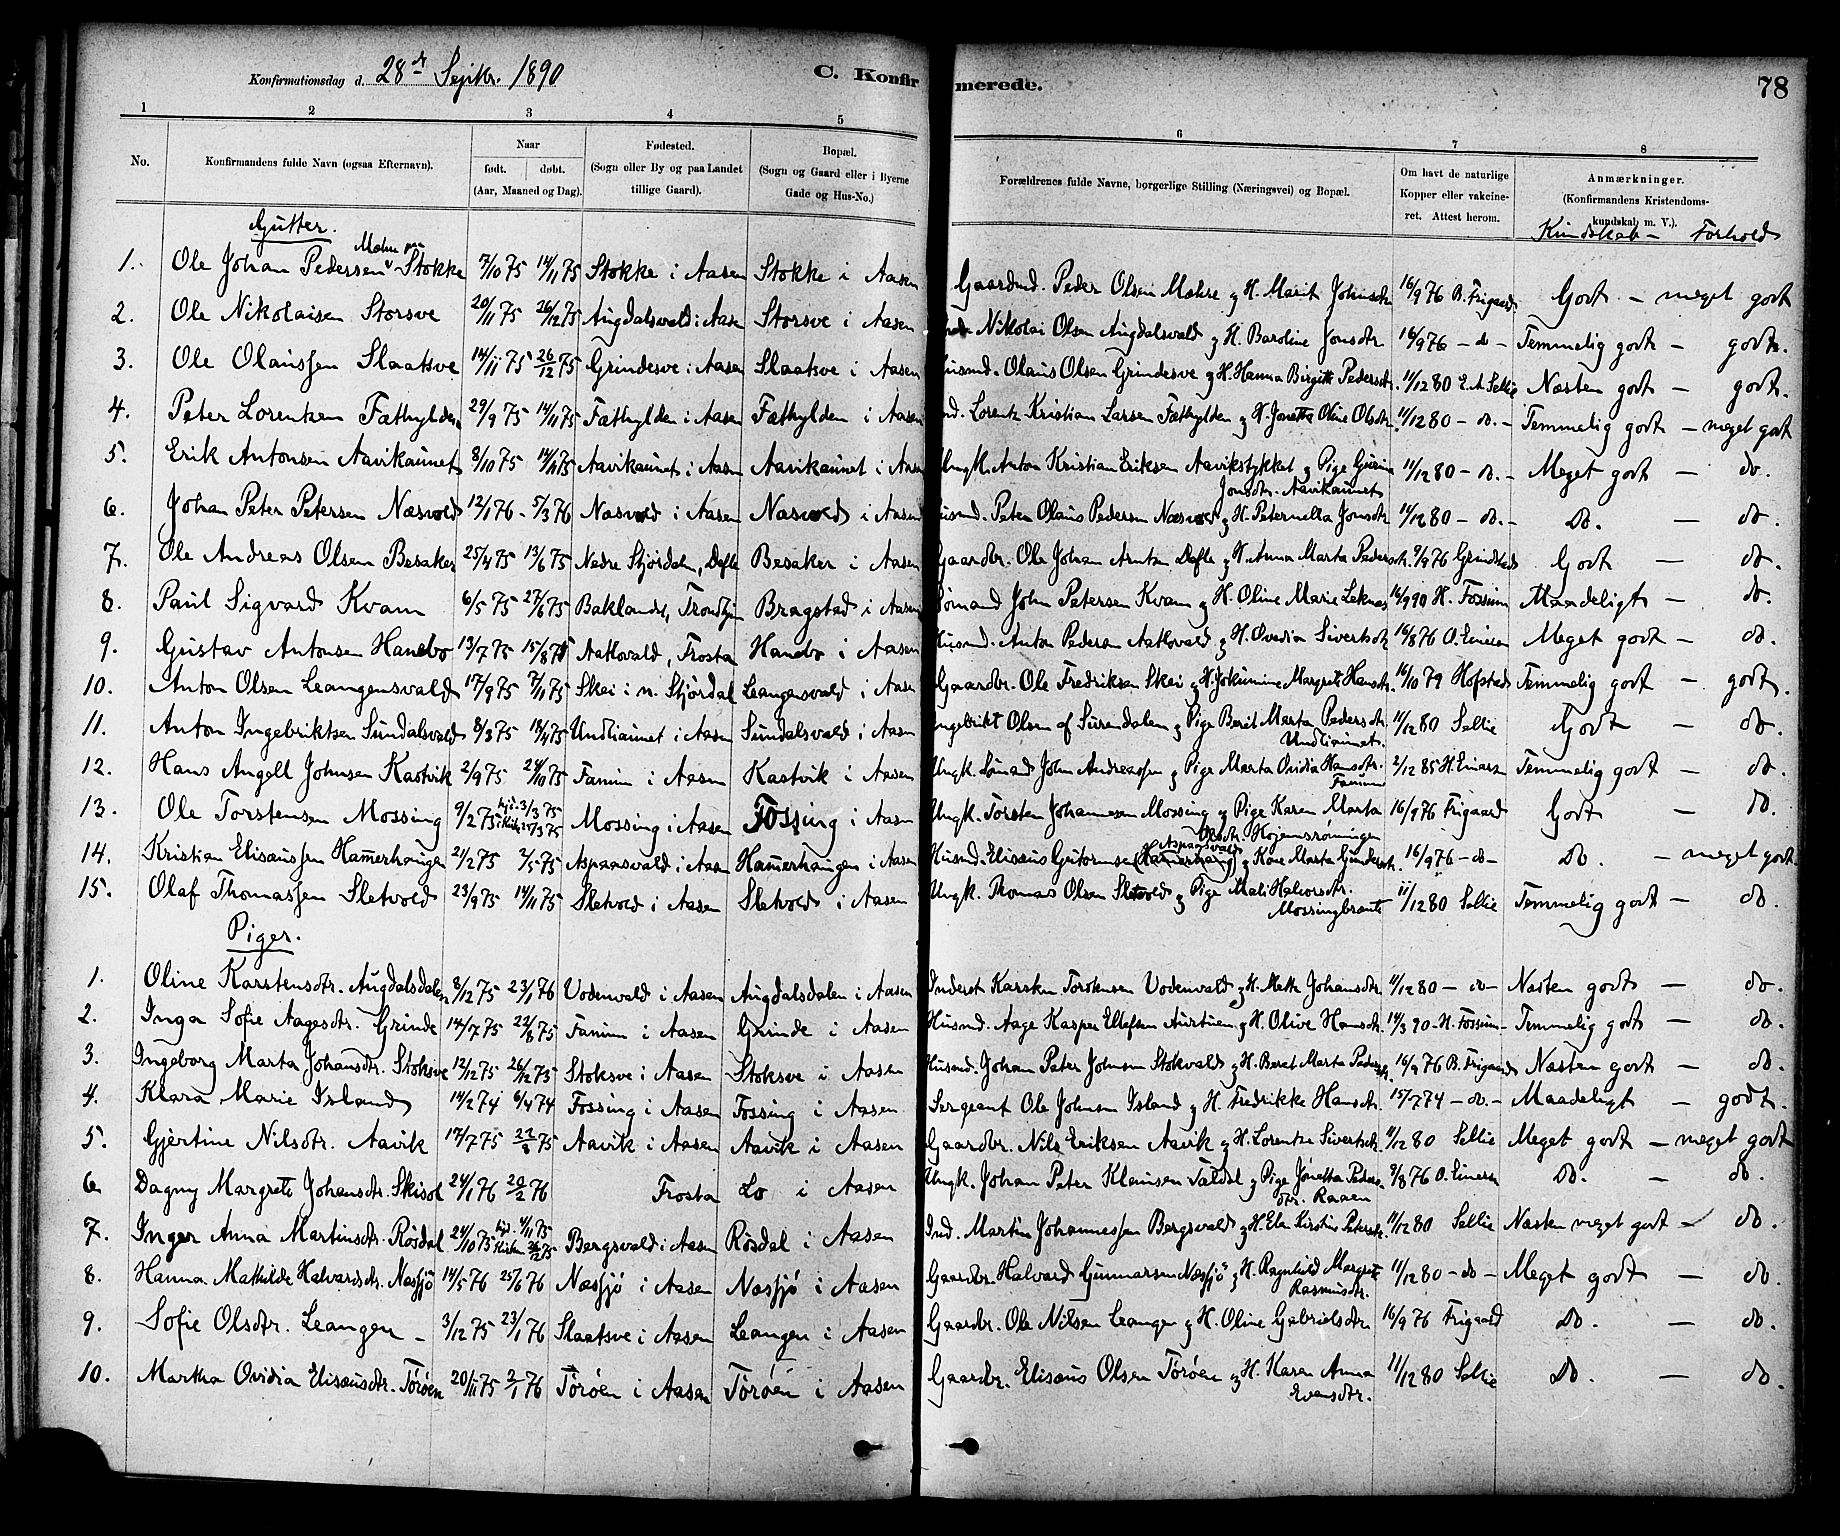 Konfirmationsdag d. 28de Septbr. 1890 C. Konfirmerede. 78
1 2 3 4 5 6 7 8
No. Konfirmandens fulde Navn (ogsaa Efternavn). Naar født. døbt. (Aar, Maaned og Dag). Fødested. (Sogn eller By og paa Landet tillige Gaard). Bopæl. (Sogn og Gaard eller i Byerne Gade og Hus-No.) Forældrenes fulde Navne, borgerlige Stilling (Næringsvei) og Bopæl. Om havt de naturlige Kopper eller vakcineret. Attest herom. Anmærkninger. (Konfirmandens Kristendomskundskab m. V.).
Kundskab – Forhold
Gutter.
1. Ole Johan Pedersen Stokke 7/10 75 14/11 75 Stokke i Aasen Stokke i Aasen Gaardmd. Peder Olsen Mæhre og H. Marit Johnsdtr. 16/9 76 B. Frigaard Godt – meget godt
2. Ole Nikolaisen Storsve 20/11 75 26/12 75 Augdalsvald i Aasen Storsve i Aasen Nikolai Olsen Augdalsvald og H. Baroline Jonsdtr. 16/9 76 – do – Temmelig godt – godt.
3. Ole Olaussen Slaatsve 14/11 75 26/12 75 Grindesve i Aasen Slaatsve i Aasen Husmd. Olaus Olsen Grindesve og H. Hanna Birgitte Pedersdtr. 11/12 80 E. A. Sellie Næsten godt – godt.
4. Peter Lorentzen Fæthylden 29/9 75 14/11 75 Fæthylden i Aasen Fæthylden i Aasen Lorentz Kristian Larsen Fæthylden og H. Jonetta Oline Olsdtr. 11/12 80 – do. – Temmelig godt – meget godt
5. Erik Antonsen Aavikaunet 8/10 75 14/11 75 Aavikaunet i Aasen Aavikaunet i Aasen Ungk. Anton Kristian Eriksen Aavikstykket og Pige Gurine Jonsdtr. Aavikaunet 11/12 80 – do. – Meget godt – do.
6. Johan Peter Petersen Næsvold 12/1 76 – 5/3 76 Næsvold i Aasen Næsvold i Aasen Husmd. Peter Olaus Pedersen Næsvold og H. Peternella Jonsdtr. 11/12 80 – do. – Do. – do.
7. Ole Andreas Olsen Besaker 25/4 75 13/6 75 Nedre Stjørdalen, Døfle Besaker i Aasen Gaardbr. Ole Johan Arntzen Døfle og H. Anna Marta Pedersdtr. 9/9 76 Grindstad Godt – do.
8. Paul Sigvard Kvam 6/5 75 27/6 75 Baklandet, Trondhjem Bragstad i Aasen Sømand John Petersen Kvam og H. Oline Marie Leknes 14/9 90 H. Fossum Maadeligt – do.
9. Gustav Antonsen Hanebo 13/7 75 15/8 75 Aatlovald, Frosta Hanebo i Aasen Husmd. Anton Pedersen Aatlovald og H. Ovidia Sivertsdtr. 16/8 76 O. Einersen Meget godt – do.
10. Anton Olsen Leangensvald 17/9 75 7/11 75 Skei i n. Stjørdal Leangensvald i Aasen Gaardbr. Ole Fredriksen Skei og H. Jokumine Margrete Hansdtr. 16/10 79 Hofstad Temmelig godt – godt.
11. Anton Ingebriktsen Sundalsvald 8/3 75 18/4 75 Undliaunet i Aasen Sundalsvald i Aasen Ingebrikt Olsen af Surendalen og Pige Berit Marta Pedersdtr. Undliaunet. 11/12 80 Sellie Godt – do.
12. Hans Angell Johnsen Kastvik 2/9 75 24/10 75 Fanum i Aasen Kastvik i Aasen Ungk. Sømand John Andreassen og Pige Marta Ovidia Hansdtr. Fanum 2/12 85 H. Einersen Temmelig godt – do.
13. Ole Torstensen Mossing 9/2 75 hjd. 3/3 75 i Kirk. 25/3 75 Mossing i Aasen Fossing i Aasen Ungk. Torsten Johannessen Mossing og Pige Karen Marta Olsdtr. Hojemsrøningen 16/9 76 Frigaard Godt – do.
14. Kristian Elisæussen Hammerhaugen 21/2 75 2/5 75 Aspaasvald i Aasen Hammerhaugen i Aasen Husmd. Elisæus Gutormsen Aspaasvald (Hammerhaug) og Kone Marta Gundersdtr. 16/9 76 – do – Do. – meget godt
15. Olaf Thomassen Sletvold 23/9 75 14/11 75 Sletvold i Aasen Sletvold i Aasen Ungk. Thomas Olsen Sletvold og Pige Mali Halvorsdtr. Mossingbrænte 11/12 80 Sellie Temmelig godt – do.
Piger.
1. Oline Karstensdtr. Augdalsdalen 8/12 75 23/1 76 Vodenvald i Aasen Augdalsdalen i Aasen Inderst Karsten Torstensen Vodenvald og H. Mette Johansdtr. 11/12 80 – do – Næsten godt – do.
2. Inga Sofie Aagesdtr. Grinde 14/7 75 22/8 75 Fanum i Aasen Grinde i Aasen Husmd. Aage Kasper Ellefsen Aurtuen og H. Olive Hansdtr. 14/3 90 – H. Fossum – Temmelig godt – do.
3. Ingeborg Marta Johansdtr. Stoksve 12/12 75 26/12 75 Stoksve i Aasen Stoksve i Aasen Husmd. Johan Peter Johnsen Stokvald og H. Beret Marta Pedersdtr. 16/9 76 B. Frigaard Næsten godt – do.
4. Klara Marie Island 14/2 74 6/4 74 Fossing i Aasen Fossing i Aasen Sergeant Ole Johnsen Island og H. Fredrikke Hansdtr. 15/7 74 – do. – Maadeligt – godt.
5. Gjertine Nilsdtr. Aavik 17/7 75 22/8 75 Aavik i Aasen Aavik i Aasen Gaardbr. Nils Eriksen Aavik og H. Lorentze Sivertsdtr. 11/12 80 Sellie Meget godt – meget godt
6. Dagny Margrete Johansdtr. Skisot 24/1 76 20/2 76 Frosta Lo i Aasen Ungk. Johan Peter Klemisen Valdal og Pige Jonetta Pedersdtr. Raaen 9/8 76 O. Einersen Do. – do.
7. Inger Anna Martinsdtr. Røsdal 24/10 75 hjd. 4/11 75 Kirken 26/12 75 Bergsvald i Aasen Røsdal i Aasen Ind. Martin Johannessen Bergsvald og H. Ele Kirstine Petersdtr. 11/12 80 Sellie Næsten meget godt – do.
8. Hanna Mathilde Halvardsdtr. Næssjø 14/5 76 25/6 76 Næssjø i Aasen Næssjø i Aasen Gaardbr. Halvard Gunnarsen Næssjø og H. Ragnhild Margrete Rasmusdtr. 11/12 80 – do – Meget godt – do.
9. Sofie Olsdtr. Leangen – 3/12 75 23/1 76 Slaatsve i Aasen Leangen i Aasen Gaardbr. Ole Nilsen Leangen og H. Oline Gabrielsdtr. 16/9 76 Frigaard Do. – do.
10. Martha Ovidia Elisæusdtr. Tørøen 20/11 75 2/1 76 Tørøen i Aasen Tørøen i Aasen Gaardbr. Elisæus Olsen Tørøen og H. Karen Anna Evensdtr. 11/12 80 Sellie Do. – do.